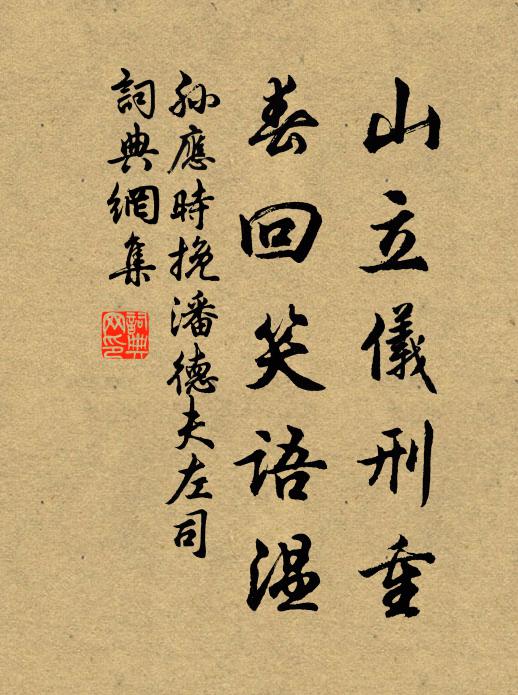 山立儀刑重
春回笑語温
孫應時挽潘德夫左司
詞典網集
詞典網印